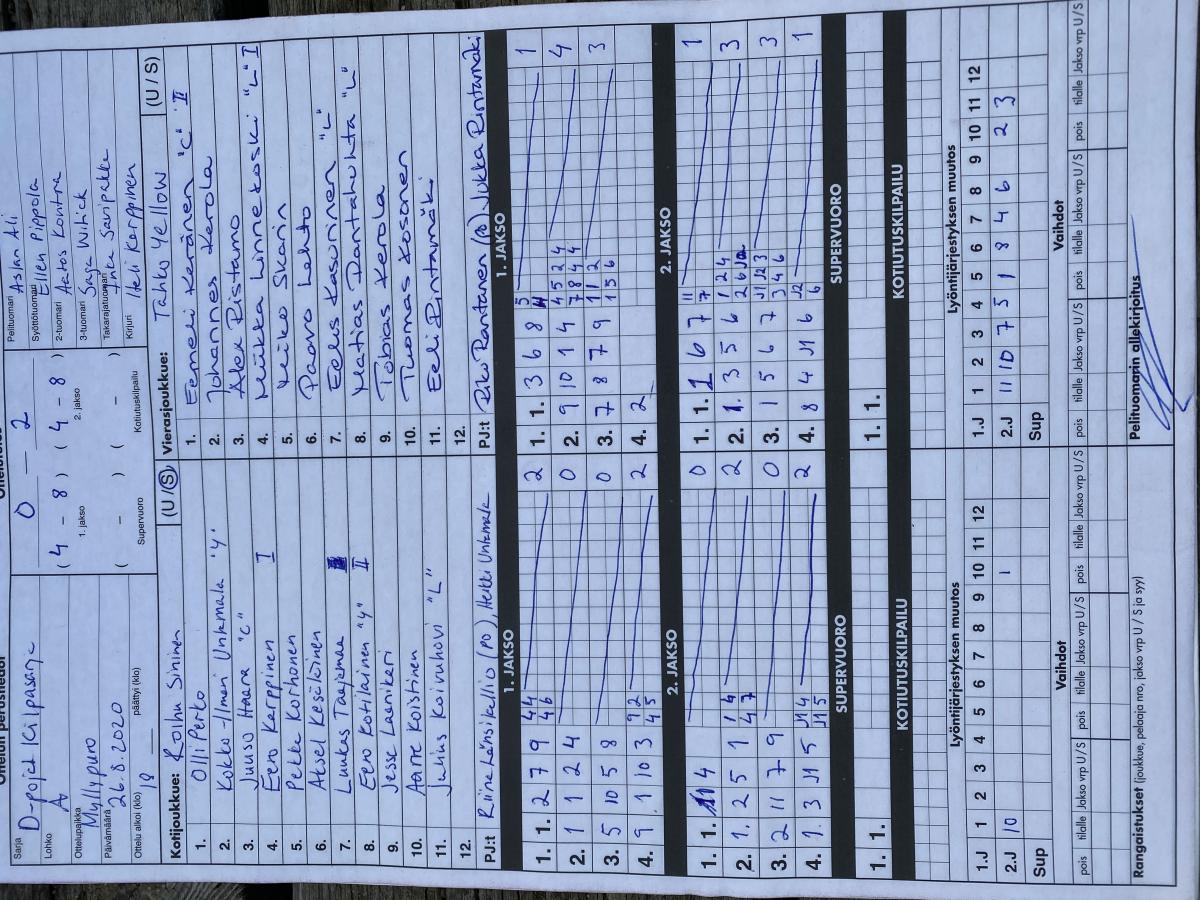 Ottelun perustiedot
Sarja D-pojat Kilpasarja
Lohko A
Ottelupaikka Myllypuro
Päivämäärä 26.8.2020
Ottelu alkoi (klo) 18 päättyi (klo)
0 — 2
( 4 - 8 ) ( 4 - 8 )
1. jakso 2. jakso
( - ) ( - )
Supervuoro Kotiutuskilpailu
Pelituomari Aslan Ali
Syöttötuomari Ellen Pippola
2-tuomari Aatos Kontra
3-tuomari Saga Wilick
Takarajatuomari Inka Saripakka
Kirjuri Heli Karppinen
Kotijoukkue: Roihu Sininen (U / S)
1. Olli Perko
2. Kokko-Ilmari Unkamala "4"
3. Juuso Haara "C"
4. Eero Karppinen I
5. Pekka Korhonen
6. Aksel Kesäläinen
7. Luukas Taajamaa
8. Eero Kotilainen "4" II
9. Jesse Laanikari
10. Aarre Koistinen
11. Julius Koivuhovi "L"
12.
PJ:t Riina Länsikallio (PO), Heikki Unkamala
Vierasjoukkue: Tahko Yellow (U / S)
1. Eemeli Keränen "C" II
2. Johannes Kerola
3. Alex Ristamo
4. Miikka Linnekoski "L" I
5. Miiko Skarin
6. Paavo Lehto
7. Eelis Kasurinen "L"
8. Matias Rantahuhta "L"
9. Tobias Kerola
10. Tuomas Kosonen
11. Eeli Rintamäki
12.
PJ:t Riko Rantanen (PO) Jukka Rintamäki
1. JAKSO
1. 1. 2 7 9 4 4 2
4 6
2. 1 1 2 4 0
3. 5 10 5 8 0
4. 9 1 10 3 9 2 2
4 5
1. JAKSO
1. 1. 3 6 8 5 1
2. 9 10 1 4 4 5 2 4 4
7 8 4 4
3. 7 8 7 9 1 1 2 3
1 5 6
4. 2 2
2. JAKSO
1. 1. 4 0
2. 1. 2 5 1 1 4 2
4 7
3. 2 11 7 9 0
4. 1. 3 J1 5 J1 4 2
J1 5
2. JAKSO
1. 1. 1 6 7 11 1
7
2. 1. 3 5 6 1 2 4 3
2 6
3. 1 5 6 7 J1 J2 3 3
3 4 6
4. 8 4 J1 6 J2 1
6
SUPERVUORO
1. 1.
SUPERVUORO
1. 1.
KOTIUTUSKILPAILU
KOTIUTUSKILPAILU
Lyöntijärjestyksen muutos
1.J 1 2 3 4 5 6 7 8 9 10 11 12
2.J 10 1
Sup
Lyöntijärjestyksen muutos
1.J 1 2 3 4 5 6 7 8 9 10 11 12
2.J 11 10 7 5 1 8 4 6 2 3
Sup
Vaihdot
pois tilalle Jakso vrp U/S pois tilalle Jakso vrp U/S pois tilalle Jakso vrp U/S
Vaihdot
pois tilalle Jakso vrp U/S pois tilalle Jakso vrp U/S pois tilalle Jakso vrp U/S
Rangaistukset (joukkue, pelaaja nro, jakso vrp U / S ja syy)
Pelituomarin allekirjoitus